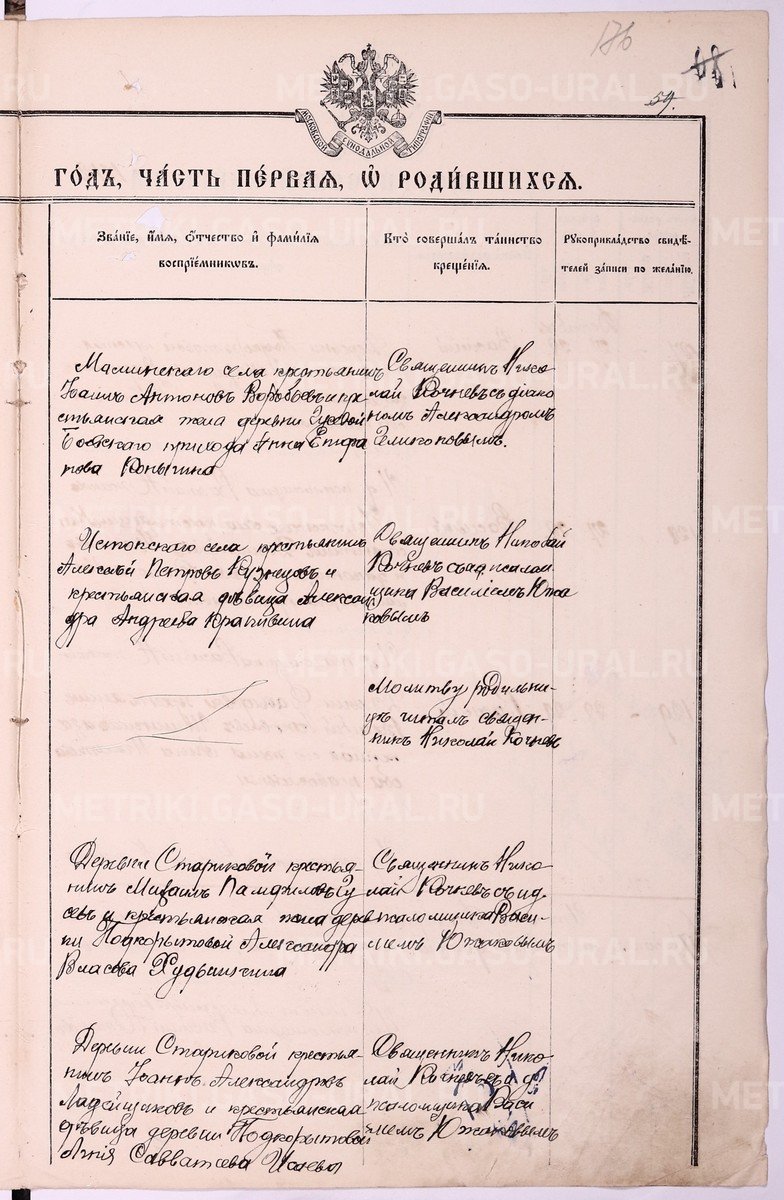 176
59.
МОСКОВСКОЙ СѴНОДАЛЬНОЙ ТИПОГРАФІИ
ГОДЪ, ЧАСТЬ ПЕРВАЯ, Ѡ РОДИВШИХСЯ.
Званіе, имя, отчество и фамилія
воспріемниковъ.
Кто совершалъ таинство
крещенія.
Рукоприкладство свидѣ-
телей записи по желанію.
Маминскаго села крестьянинъ
Іоаннъ Антоновъ Воробьевъ и кре
стьянская жена деревни
прихода Анна
нова Коныгина
Священникъ Нико
лай Кочневъ съ діако
номъ Александромъ
Истокскаго села крестьянинъ
Алексѣй Петровъ Кузнецовъ и
крестьянская дѣвица Алексан
дра Андреева Крапивина
Священникъ Николай
Кочневъ съ и.д. псалом
щика Василіемъ Южа
ковымъ
Молитву родильни-
цѣ читалъ священ-
никъ Николай Кочневъ
Деревни Стариковой крестья-
нинъ Михаилъ Памфиловъ Гу
севъ и крестьянская жена дерев
ни Подкорытовой Александра
Власова
Священникъ Нико
лай Кочневъ съ и.д.
псаломщика Васи-
ліемъ Южаковымъ
Деревни Стариковой крестья-
нинъ Іоаннъ Александровъ
Ладейщиковъ и крестьянская
дѣвица деревни Подкорытовой
Савватѣева
Священникъ Нико
лай Кочневъ съ и.д.
псаломщика Васи
ліемъ Южаковымъ
METRIKI.GASO-URAL.RU